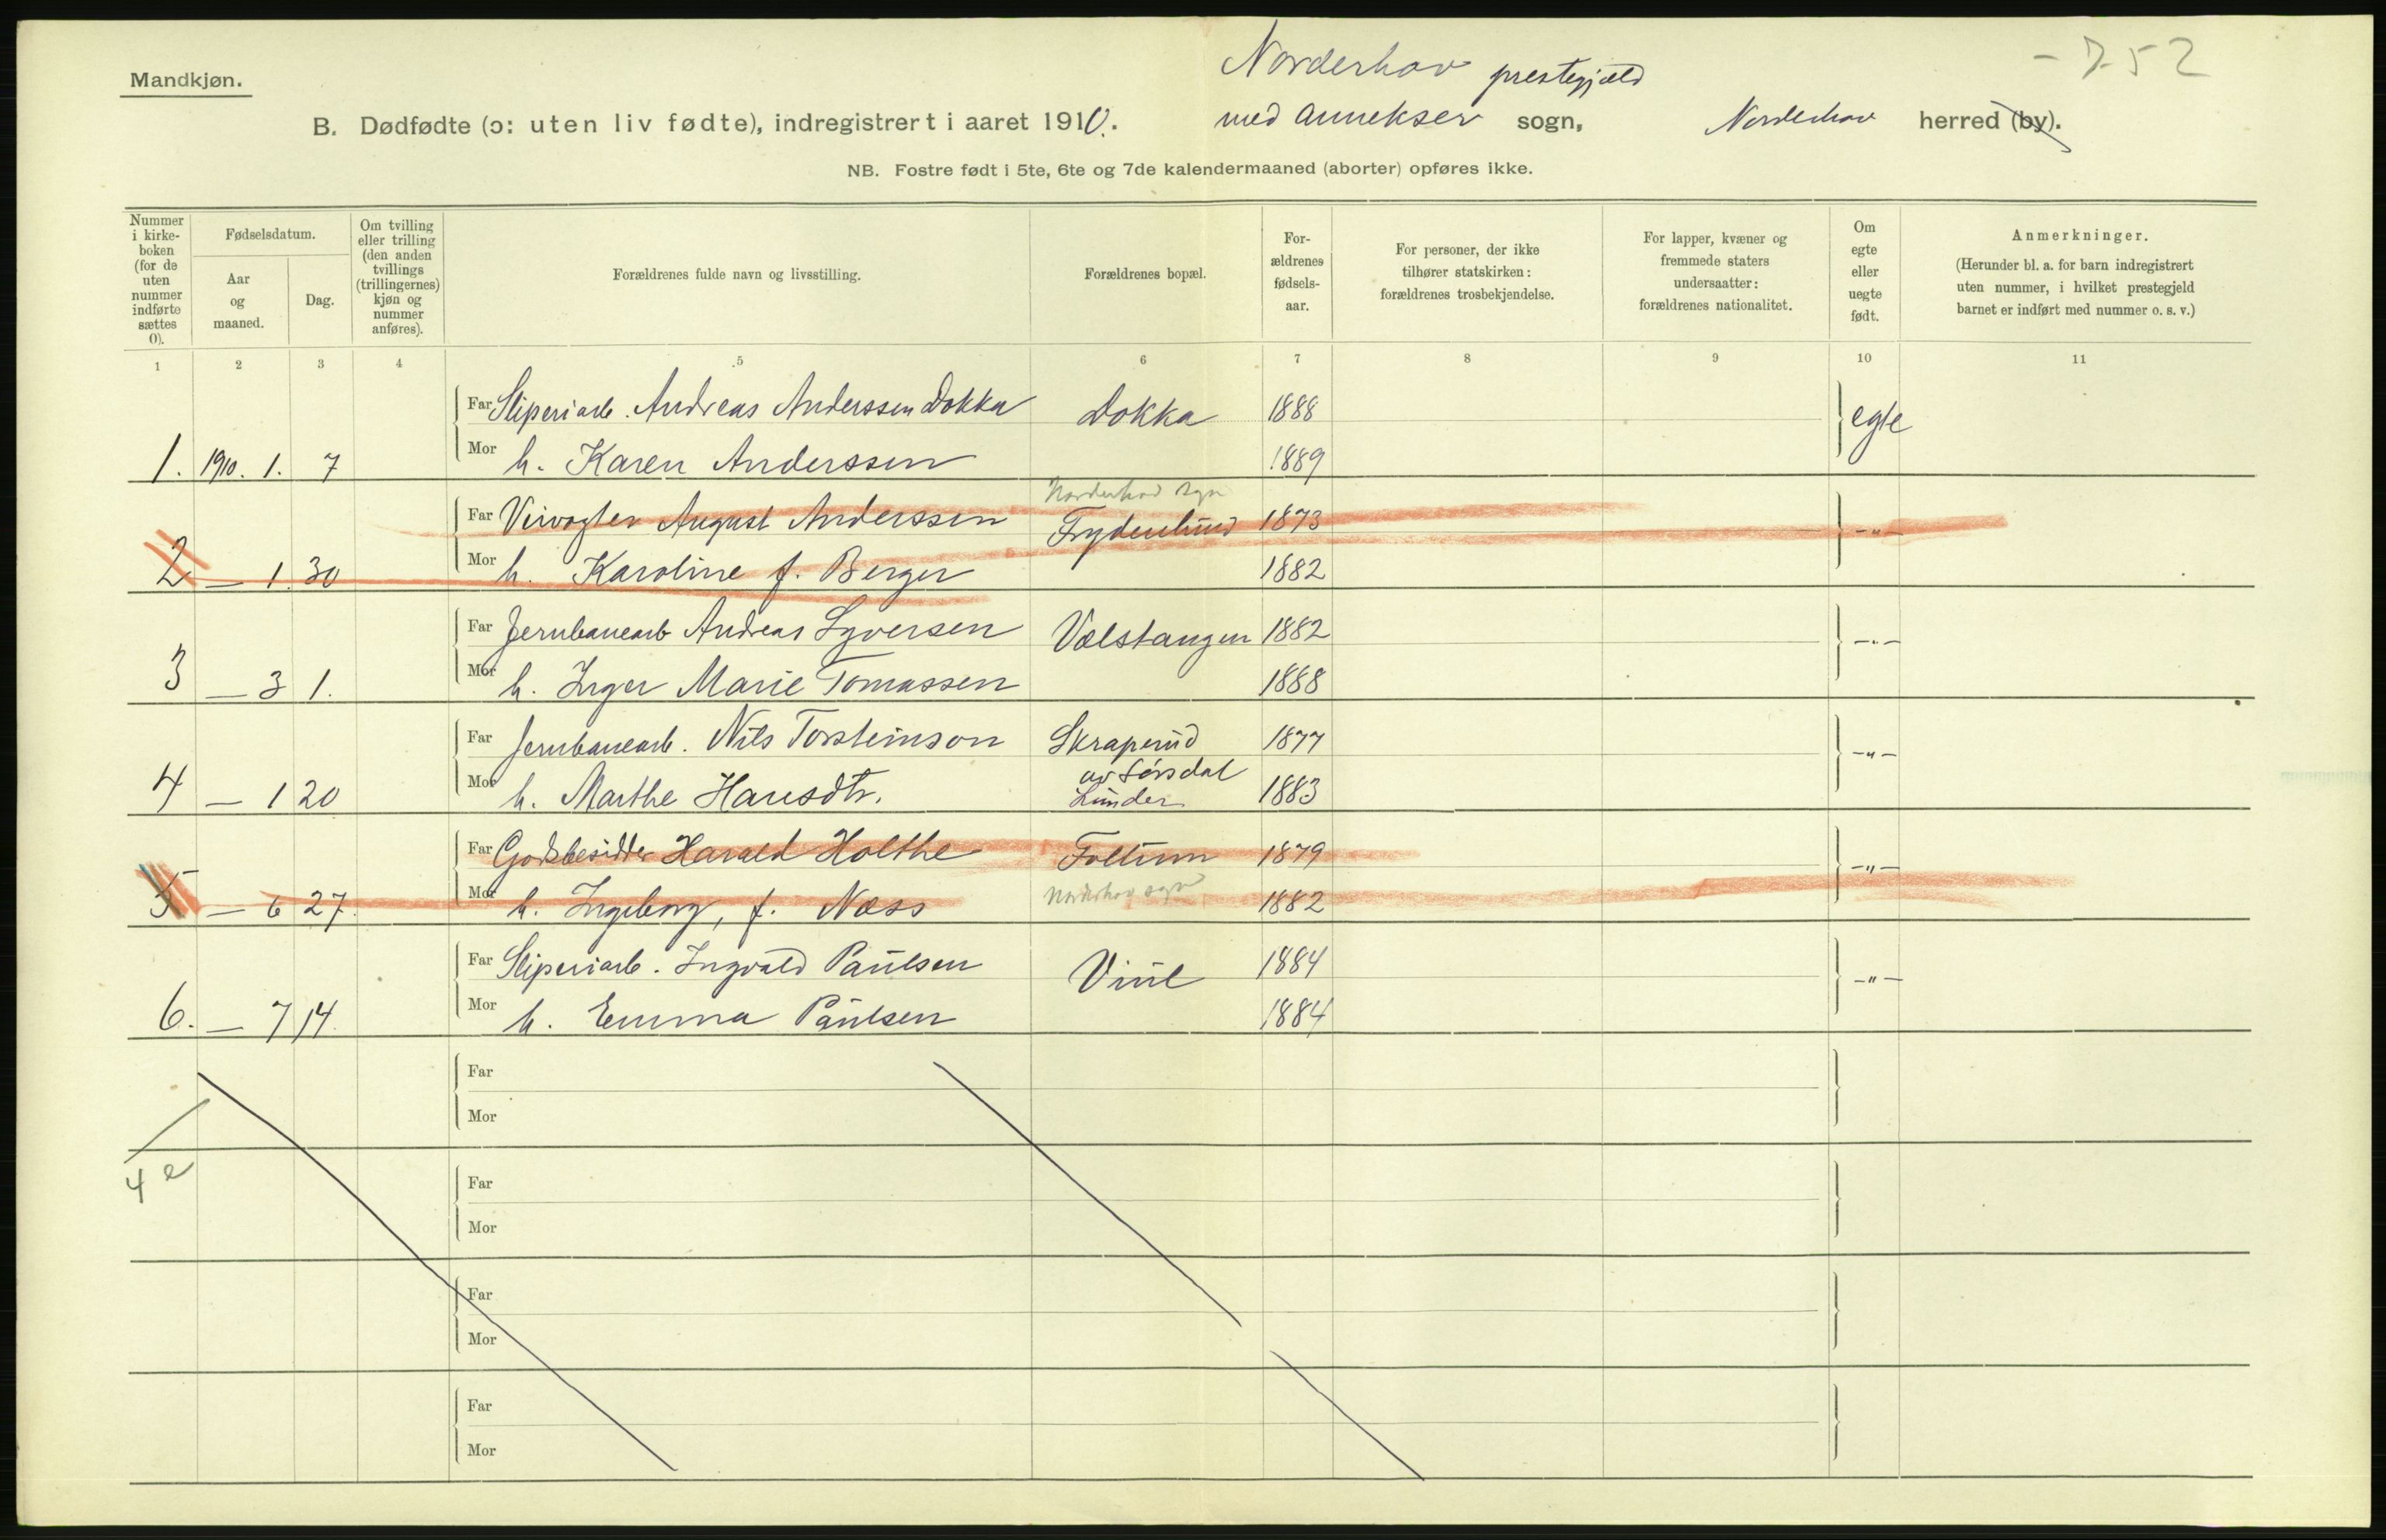 Mandkjøn.
Norderhov prestegjæld
- 752
B. Dødfødte (ɔ: uten liv fødte), indregistrert i aaret 1910.. med annekser sogn, Norderhov herred (by).
NB. Fostre født i 5te, 6te og 7de kalendermaaned (aborter) opføres ikke.
Nummer
i kirke-
boken
(for de
uten
nummer
indførte
sættes
0).
Fødselsdatum.
Aar
og
maaned.
Dag.
Om tvilling
eller trilling
(den anden
tvillings
(trillingernes)
kjøn og
nummer
anføres).
Forældrenes fulde navn og livsstilling.
Forældrenes bopæl.
For-
ældrenes
fødsels-
aar.
For personer, der ikke
tilhører statskirken:
forældrenes trosbekjendelse.
For lapper, kvæner og
fremmede staters
undersaatter:
forældrenes nationalitet.
Om
egte
eller
uegte
født.
Anmerkninger.
(Herunder bl. a. for barn indregistrert
uten nummer, i hvilket prestegjeld
barnet er indført med nummer o. s. v.)
1 2 3 4 5 6 7 8 9 10 11
Far Sliperiarb. Andreas Anderssen Dokka Dokka 1888 egte
1. 1910. 1. 7 Mor h. Karen Anderssen 1889
Norderhov sogn
Far Veivogter August Anderssen Frydenlund 1873 -"-
2 — 1. 30 Mor h. Karoline f. Berger 1882
Far Jernbanearb Andreas Syversen Vælstangen 1882 -"-
3 — 3 1. Mor h. Inger Marie Tomassen 1888
Far Jernbanearb. Nils Torsteinson Skraperud 1877 -"-
av Sørsdal
4 — 1 20 Mor h. Marthe Hansdtr. Lunder 1883
Far Godsbesidder Harald Holthe Follum 1879 -"-
5 — 6 27. Mor h. Ingeborg, f. Næss Norderhov sogn 1882
Far Sliperiarb. Ingvald Paulsen Viul 1884 -"-
6. — 7 14. Mor h. Emma Paulsen 1884
Far
Mor
4 e
Far
Mor
Far
Mor
Far
Mor